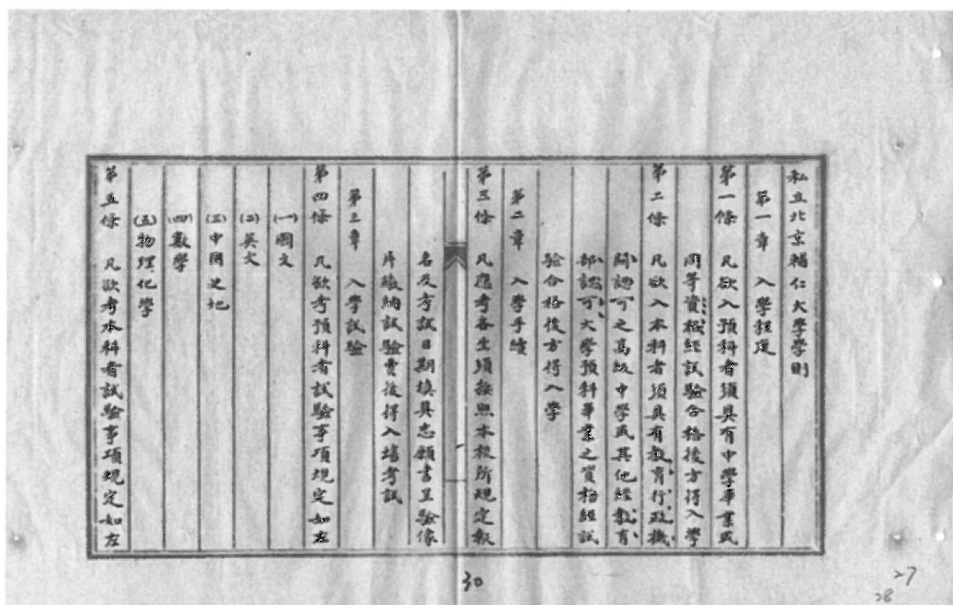 私立北京輔仁大學學則
第一章　入學程度
第一條　凡欲入預科者須具有中學畢業或
同等資格經試驗合格後方得入學
第二條　凡欲入本科者須具有教育行政機
關認可之高級中學或其他經教育
部認可大學預科畢業之資格經試
驗合格後方得入學
第二章　入學手續
第三條　凡應考各生須按照本校所規定報
名及考試日期填具志願書呈驗像
片繳納試驗費後得入場考試
第三章　入學試驗
第四條　凡欲考預科者試驗事項規定如左
(一)國文
(二)英文
(三)中國史地
(四)數學
(五)物理化學
第五條　凡欲考本科者試驗事項規定如左
30
27
28